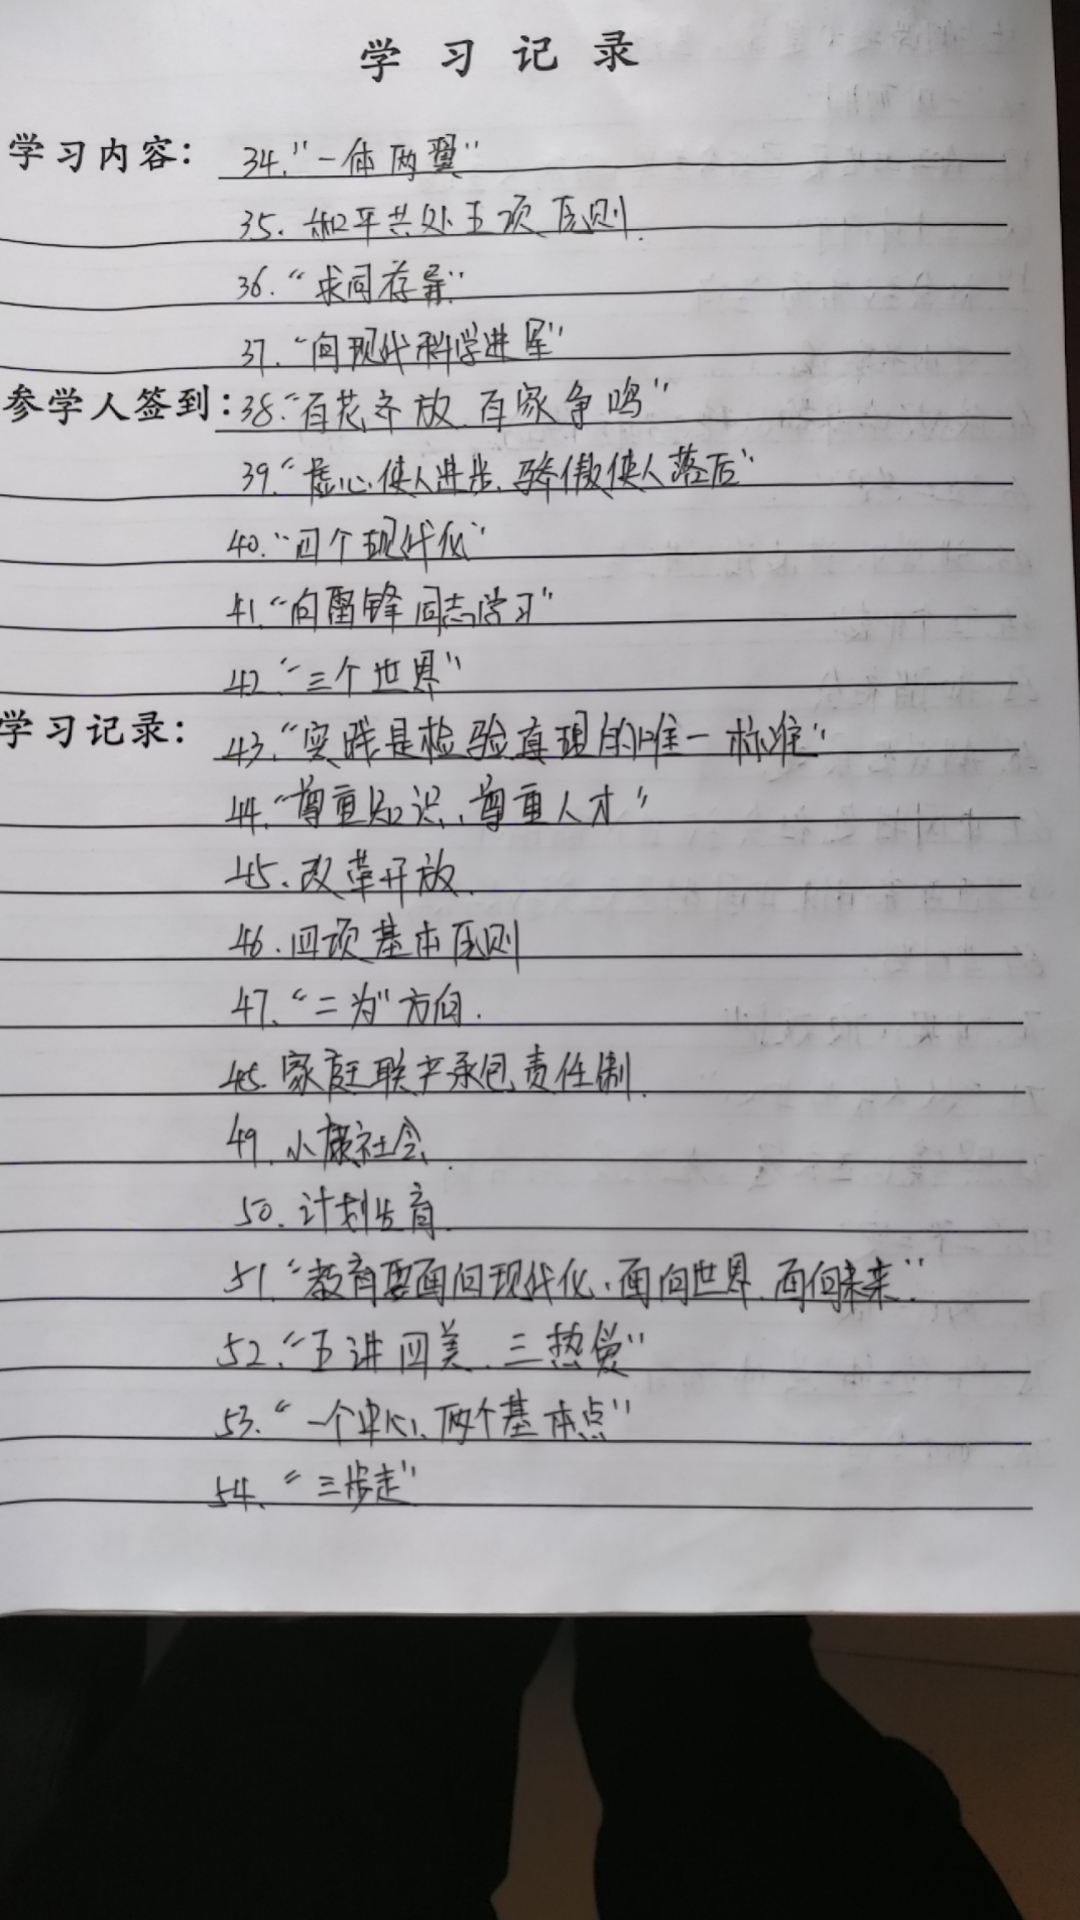 学习记录
学习内容：34.“一体两翼”
35.和平共处五项原则.
36.“求同存异”
37.“向现代科学进军”
参学人签到：38.“百花齐放.百家争鸣”
39.“虚心使人进步、骄傲使人落后”
40.“四个现代化”
41.“向雷锋同志学习”
42.“三个世界”
学习记录：43.“实践是检验真理的唯一标准”
44.“尊重知识、尊重人才”
45.改革开放.
46.四项基本原则
47.“二为”方向.
48.家庭联产承包责任制.
49.小康社会.
50.计划生育.
51.“教育要面向现代化、面向世界、面向未来”.
52.“五讲四美、三热爱”
53.“一个中心、两个基本点”
54.“三步走”